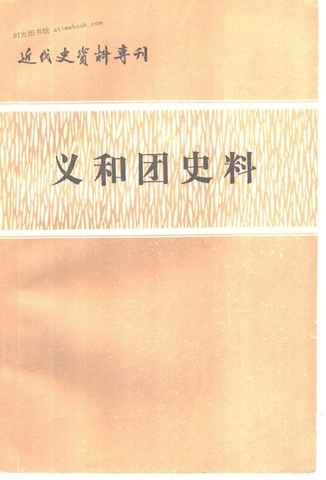 时光图书馆 atimebook.com
近代史资料专刊
义和团史料